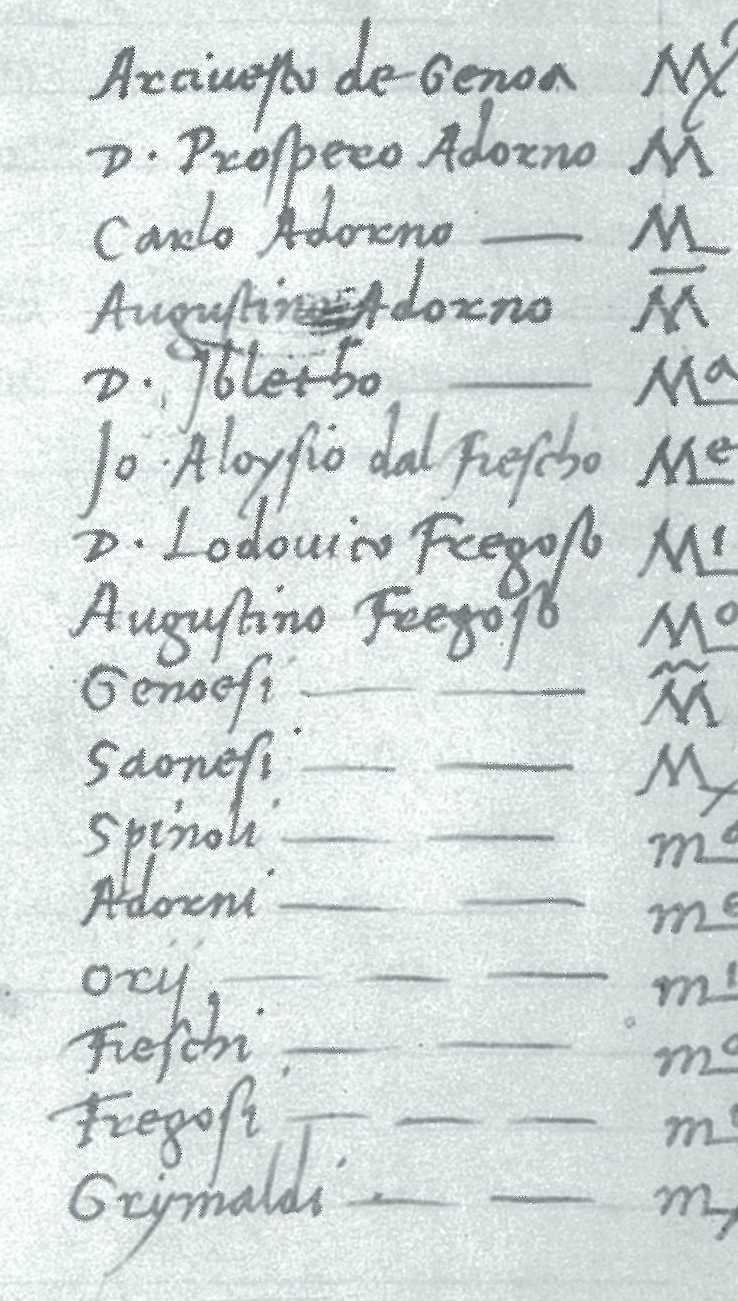 Arciuesco de Genoa M
D. Prospero Adorno M
Carlo Adorno — M
Augustino Adorno M̄
D. Jbletho — Ma
Jo. Aloysio dal Fiescho Me
D. Lodouico Fregoso Mi
Augustino Fregoso Mo
Genoesi — — M̃
Saonesi — — M
Spinoli — — m
Adorni — — me
Orij — — — mi
Fieschi — — mo
Fregosi — — — m
Grijmaldi — — m